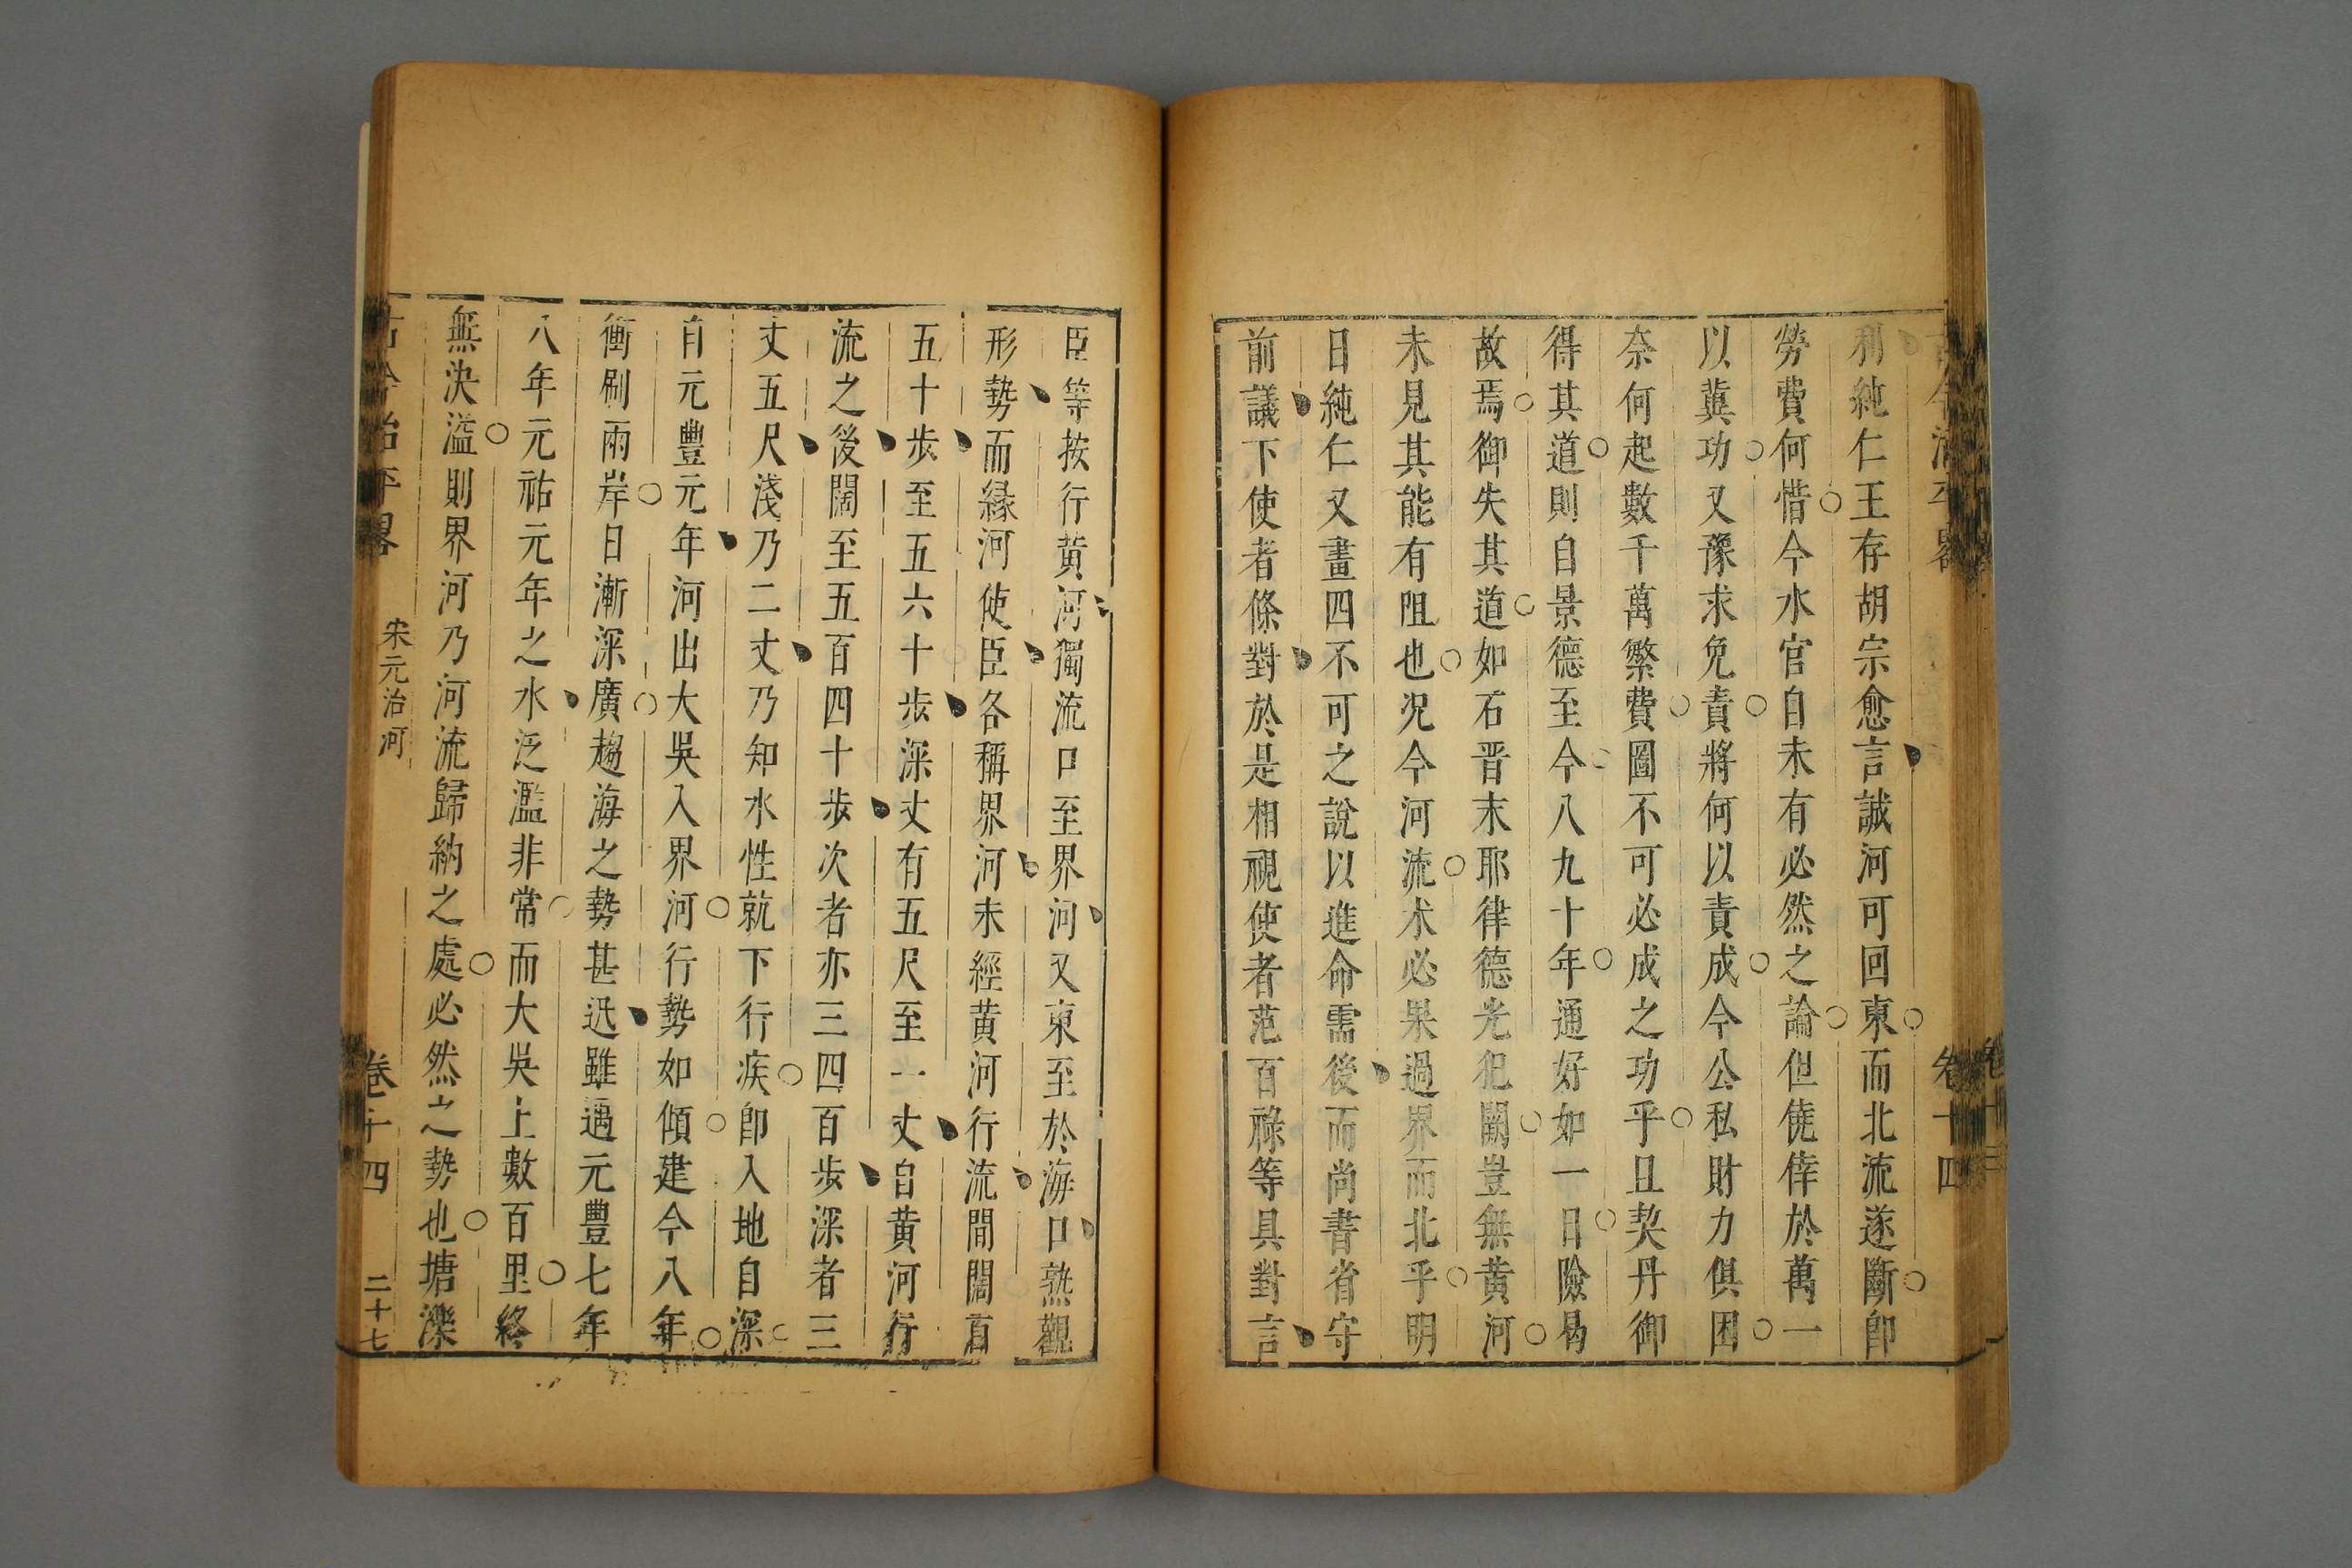 利純仁王存胡宗愈言誠河可回東而北流遂斷卽
勞費何惜今水官自未有必然之論但僥倖於萬一
以冀功又豫求免責將何以責成今公私財力俱困
奈何起數千萬繁費圖不可必成之功乎且契丹御
得其道則自景德至今八九十年通好如一日險曷
故焉御失其道如石晋末耶律德光犯闕豈無黄河
未見其能有阻也况今河流未必果過界而北乎明
日純仁又畫四不可之說以進命需後而尚書省守
前議下使者條對於是相視使者范百祿等具對言
臣等按行黄河獨流口至界河又東至於海口熟觀
形勢而緣河使臣各稱界河未經黄河行流間闊百
五十步至五六十步深丈有五尺至一丈自黄河行
流之後闊至五百四十步次者亦三四百步深者三
丈五尺淺乃二丈乃知水性就下行疾卽入地自深
自元豐元年河出大吳入界河行勢如傾建今八年
衝刷兩岸日漸深廣趨海之勢甚迅雖遇元豐七年
八年元祐元年之水泛濫非常而大吳上數百里終
無決溢則界河乃河流歸納之處必然之勢也塘濼
古今治平畧 宋元治河 卷十四 二十七